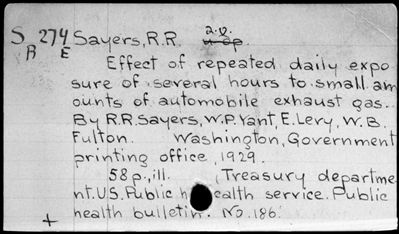 S 274 Sayers, R.R. 2.v.
R E
Effect of repeated daily expo
sure of several hours to small am
ounts of automobile exhaust gas.
By R.R. Sayers, W.P. Yant, E. Levy, W.B.
Fulton. Washington, Government
printing office, 1929.
58 p., ill. (Treasury departme
nt. U.S. Public health service. Public
health bulletin. No. 186.
+